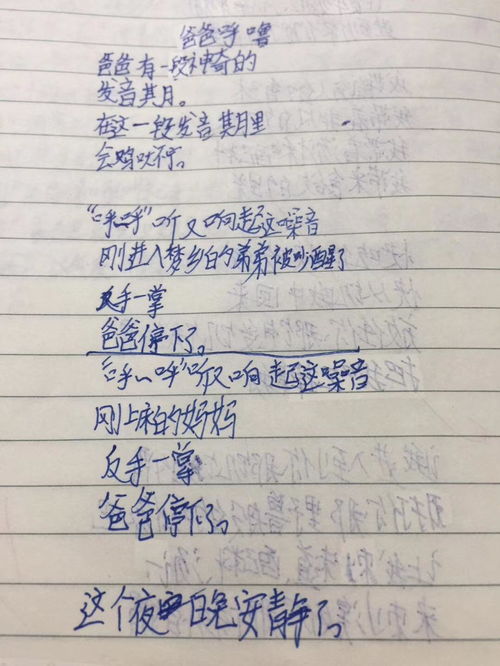 爸爸呼噜
爸爸有一段神奇的
发音其月。
在这一段发音其月里
会鸣吠不停。
“呼呼”听又响起这噪音
刚进入梦乡的弟弟被吵醒了
反手一掌
爸爸停下了。
“呼、呼”听又响起这噪音
刚上床的妈妈
反手一掌
爸爸停下了。
这个夜晚安静了。